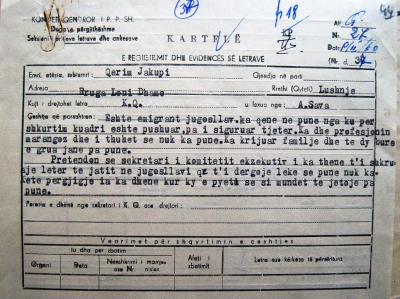 KOMITETI QENDROR I P. P. SH.
Drejtoria e përgjithëshme
Seksioni i punëve letrave dhe ankesave
K A R T E L Ë
E REGJISTRIMIT DHE EVIDENCËS SË LETRAVE
Alf. G.
Nr. 27
Dt.
(Nr. d.
p 18
44
Emri, atësia, mbiemri: Qerim Jakupi
Gjendja më parti
Adresa Rruga Leni Dhamo
Rrethi (Qyteti) Lushnje
Kujt i drejtohet letra K.Q.
u lexua nga: A.Sava
Çështja që parashtron: Eshte emigrant jugosllav. ka qene ne pune nga ku per
shkurtim kuadri eshte pushuar, pa i siguruar tjeter. Ka dhe profesionin
marangoz dhe i thuhet se nuk ka pune. Ka krijuar familje dhe te dy bure
e grua jane pa pune.
Pretendon se sekretari i komitetit ekzekutiv i ka thene t'i shkru-
aje leter te jatit ne jugosllavi qe t'i dergoje leke se pune nuk ka
kete pergjigje ia ka dhene kur ky e pyeti se si mundet te jetoje pa
pune.
Porosia e dhënë nga sekretari i K. Q. ose drejtori:
Veprimet për shqyrtimin e çështjes
Iu dha për zbatim
Organi
Data
Nënshkrimi i marrjes ose Nr. i nisjes
Afati i zbatimit
Letra ose kërkesa të përsëritura